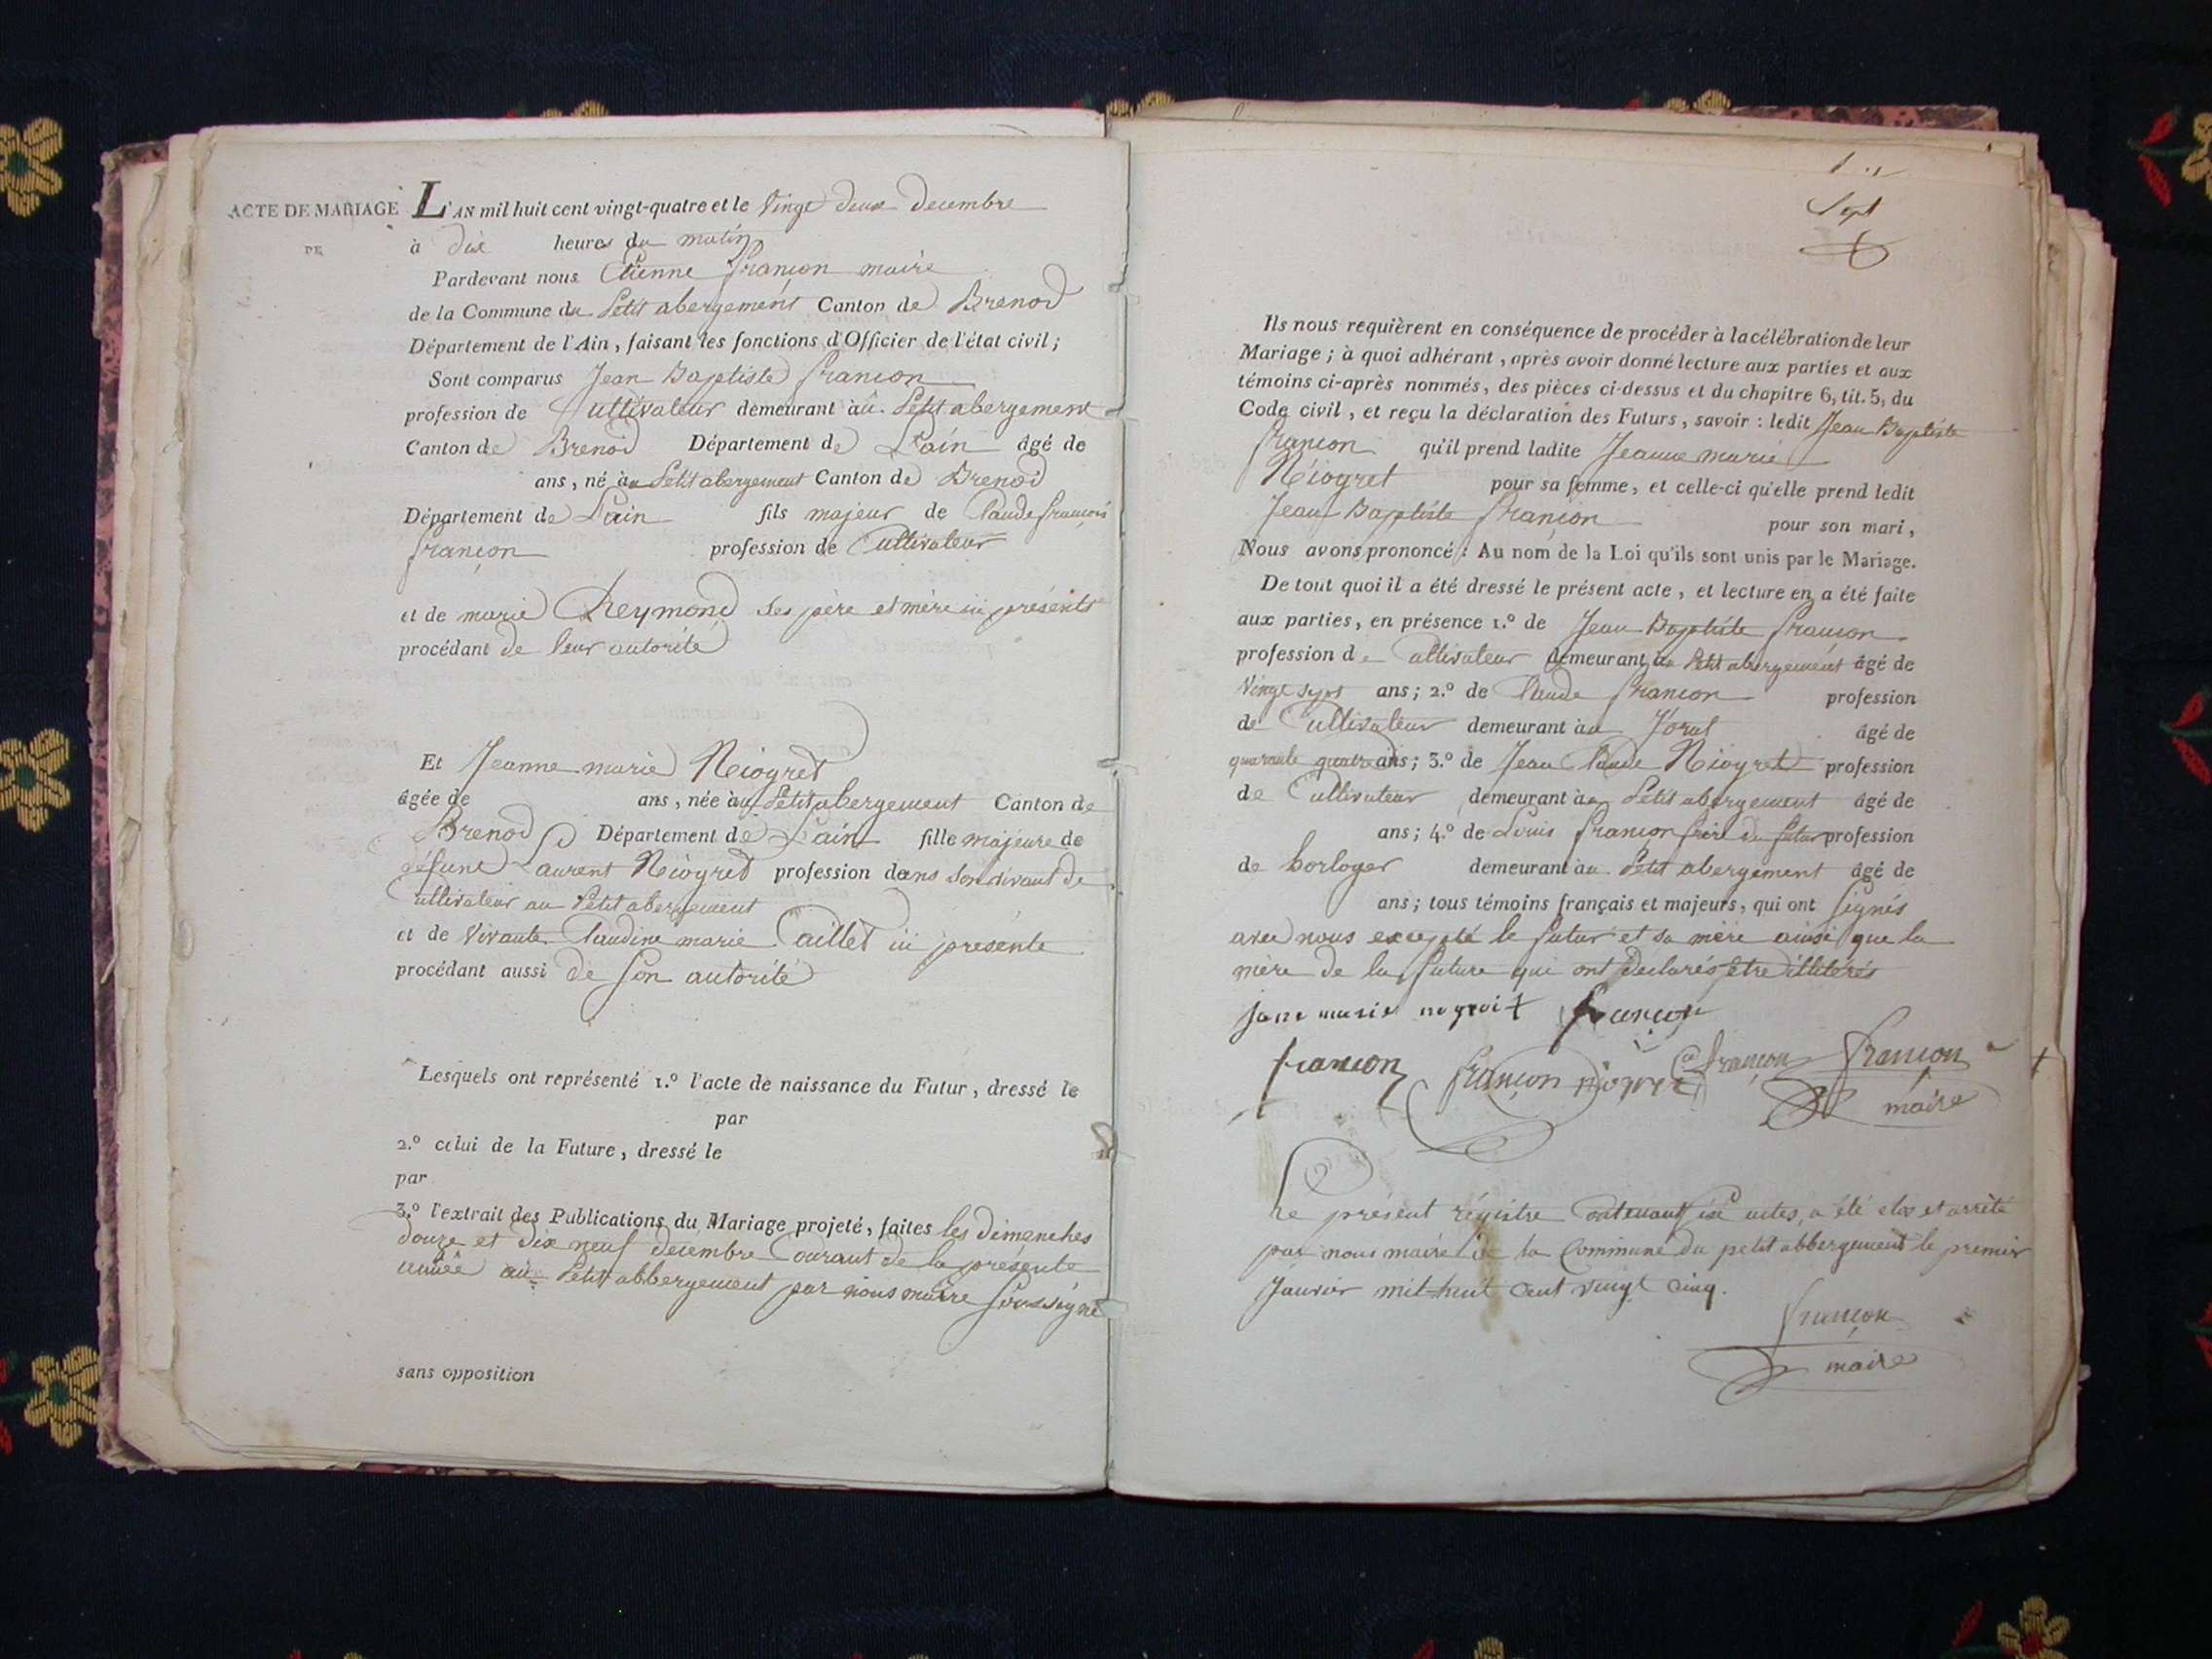 ACTE DE MARIAGE
DE
L'AN mil huit cent vingt-quatre et le vingt deux decembre
à dix heures du matin
Pardevant nous Etienne françon maire
de la Commune du Petit abergement Canton de Brenod
Département de l'Ain, faisant les fonctions d'Officier de l'état civil;
Sont comparus Jean Baptiste francon
profession de Cultivateur demeurant au Petit abergement
Canton de Brenod Département de L'ain âgé de
ans, né au Petit abergement Canton de Brenod
Département de L'ain fils majeur de Claude francois
françon profession de Cultivateur
et de marie Reymond ses père et mère ici présents
procédant de leur autorité
Et Jeanne marie Niogret
âgée de ans, née au Petit abergement Canton de
Brenod Département de L'ain fille majeure de
défunt Laurent Niogret profession dans son vivant de
Cultivateur au Petit abergement
et de vivante Claudine marie Caillet ici présente
procédant aussi de son autorité
Lesquels ont représenté 1.º l'acte de naissance du Futur, dressé le
par
2.º celui de la Future, dressé le
par
3.º l'extrait des Publications du Mariage projeté, faites les dimenches
douze et dix neuf decembre Courant de la présente
année au Petit abbergement par nous maire soussigné
sans opposition
Sept
Ils nous requièrent en conséquence de procéder à la célébration de leur
Mariage; à quoi adhérant, après avoir donné lecture aux parties et aux
témoins ci-après nommés, des pièces ci-dessus et du chapitre 6, tit. 5, du
Code civil, et reçu la déclaration des Futurs, savoir : ledit Jean Baptiste
francon qu'il prend ladite Jeanne marie
Niogret pour sa femme, et celle-ci qu'elle prend ledit
Jean Baptiste françon pour son mari,
Nous avons prononcé : Au nom de la Loi qu'ils sont unis par le Mariage.
De tout quoi il a été dressé le présent acte, et lecture en a été faite
aux parties, en présence 1.º de Jean Baptiste françon
profession de Cultivateur demeurant au Petit abergement âgé de
vingt sept ans; 2.º de Claude francon profession
de Cultivateur demeurant au Jorat âgé de
quarante quatre ans; 3.º de Jean Claude Niogret profession
de Cultivateur demeurant au Petit abergement âgé de
ans; 4.º de Louis françon frère du futur profession
de horloger demeurant au Petit abergement âgé de
ans; tous témoins français et majeurs, qui ont signés
avec nous excepté le futur et sa mère ainsi que la
mère de la future qui ont déclarés être illitérés
jane marie nogroit francon
francon françon niogret françon françon
maire
Le présent régistre Contenant six actes, a été clos et arrêté
par nous maire de la Commune du petit abbergement le premier
Janvier mil huit Cent vingt Cinq.
françon
maire